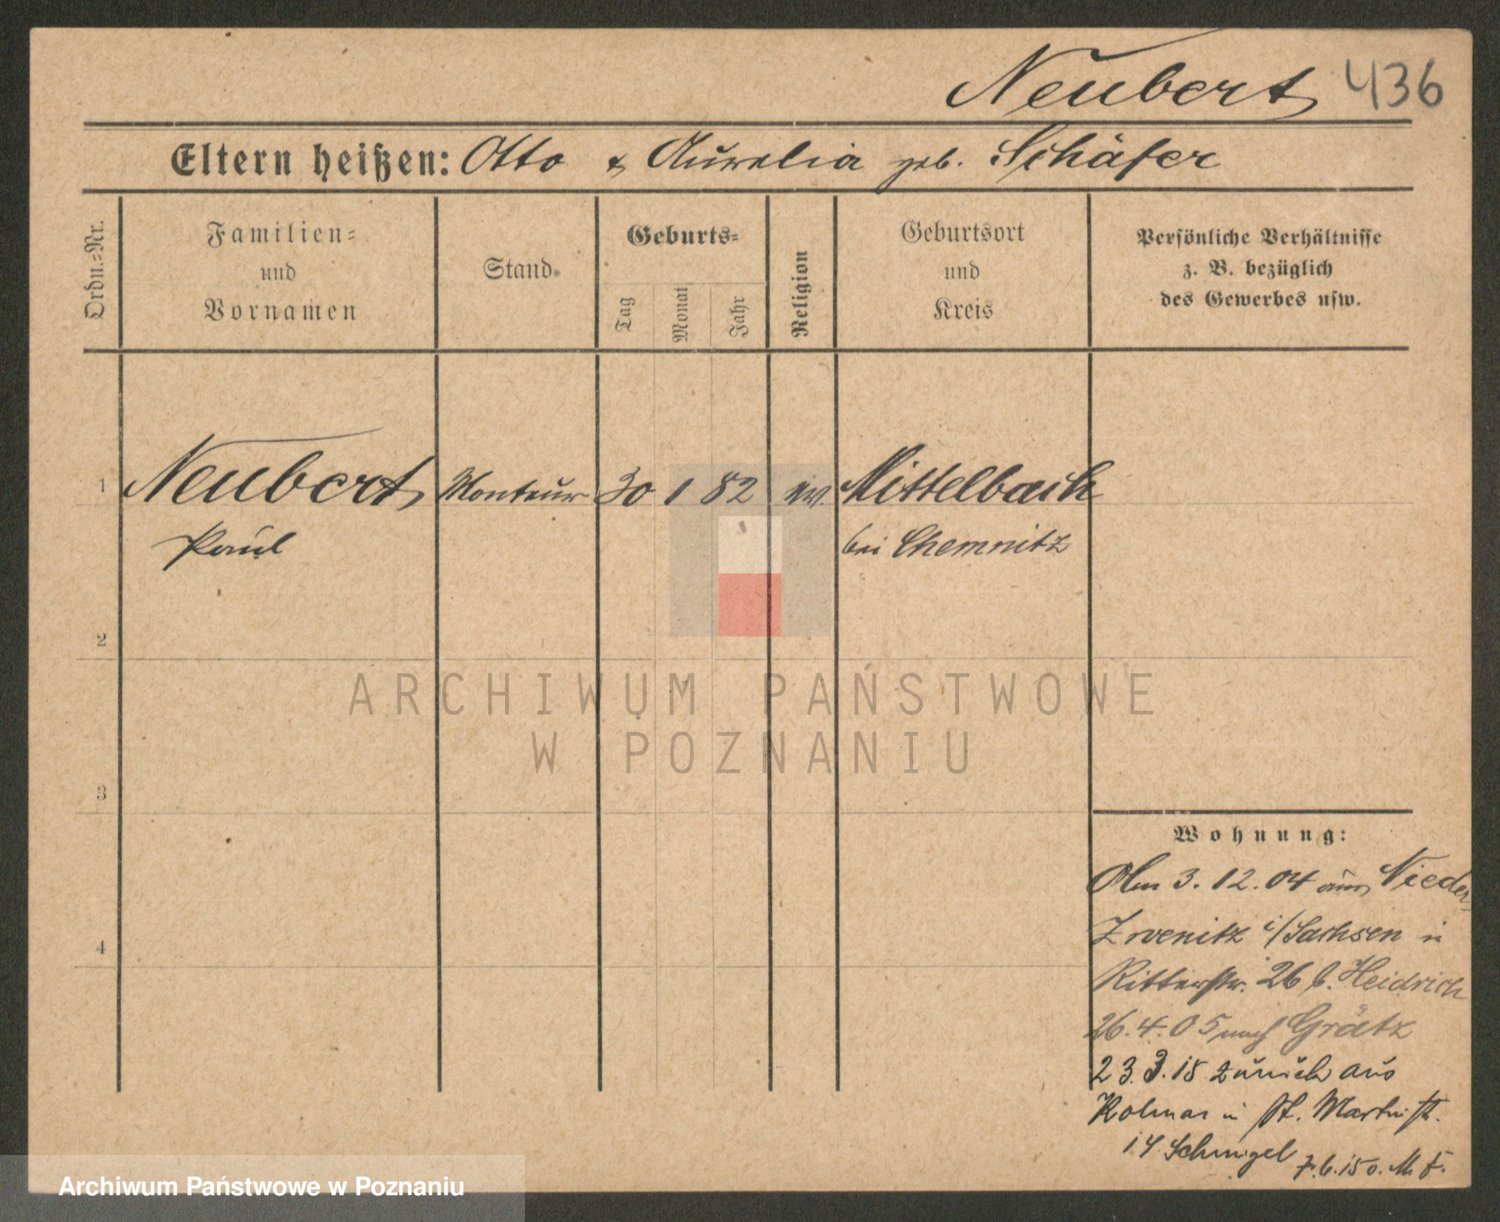 Neubert 436
Eltern heißen: Otto & Aurelia geb. Schäfer
Ordn.-Nr.
Familien-
und
Vornamen
Stand.
Geburts-
Tag
Monat
Jahr
Religion
Geburtsort
und
Kreis
Persönliche Verhältnisse
z. B. bezüglich
des Gewerbes usw.
1 Neubert Monteur 30 1 82 ev. Mittelbach
Paul bei Chemnitz
2
3
4
Wohnung:
Am 3. 12. 04 aus Nieder-
Zwönitz i/Sachsen in
Ritterstr. 26 b. Heidrich
26.4.05 nach Grätz
23.3.15 zurück aus
Kolmar in St. Martinstr.
14 Schmigel 7.6.15 o.M.
ARCHIWUM PAŃSTWOWE
W POZNANIU
Archiwum Państwowe w Poznaniu